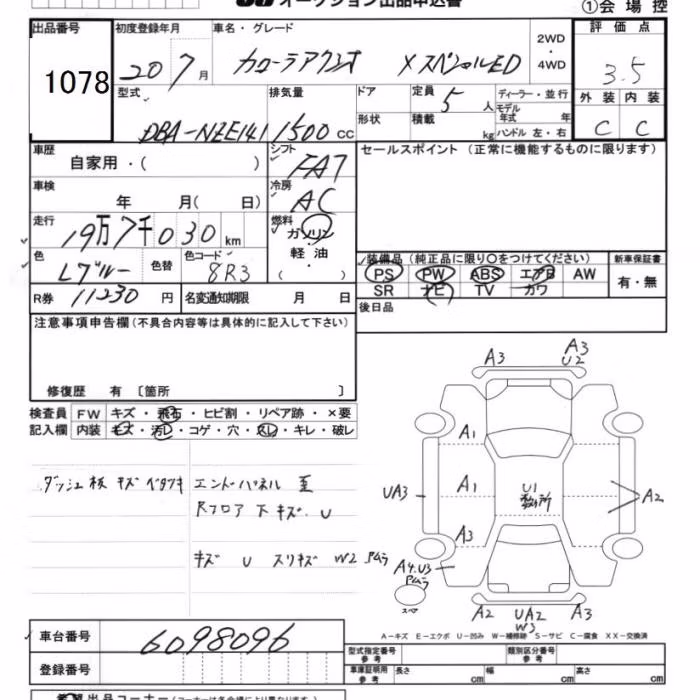 オークション出品申込書
①会場控
出品番号
1078
初度登録年月
20 7 月
車名・グレード
カローラアクシオ XスペシャルED
2WD
・
4WD
評価点
3.5
型式
DBA-NZE141
排気量
1500 cc
ドア
形状
定員 5 人
積載 kg
ディーラー・並行
モデル年式 年
ハンドル 左・右
外装 内装
C C
車歴
自家用・( )
シフト
FAT
セールスポイント (正常に機能するものに限ります)
車検
年 月( 日)
冷房
AC
走行
19万7千030 km
燃料
ガソリン
・
軽油
・
( )
色
Lブルー
色替
色コード
8R3
装備品 (純正品に限り〇をつけてください)
新車保証書
PS PW ABS エアB AW
SR ナビ TV カワ
有・無
R券 11230 円
名変通知期限 月 日
後日品
注意事項申告欄 (不具合内容等は具体的に記入して下さい)
修復歴 有 〔箇所 〕
検査員 FW キズ・飛石・ヒビ割・リペア跡・×要
記入欄 内装 キズ・汚レ・コゲ・穴・スレ・キレ・破レ
ダッシュ板 キズ ベタツキ
エンドパネル 歪
Rフロア 下キズ U
キズ U スリキズ W2 PMムラ
A3
A3
U2
A1
UA3
A1
U1
A2
A3
A4.U3
スペア
A2
UA2
W3
A3
A-キズ E-エクボ U-凹み W-補修跡 S-サビ C-腐食 XX-交換済
車台番号 6098096
登録番号
型式指定番号
参考
類別区分番号
参考
車庫証明用
参考
長さ cm
幅 cm
高さ cm
出品コーナー